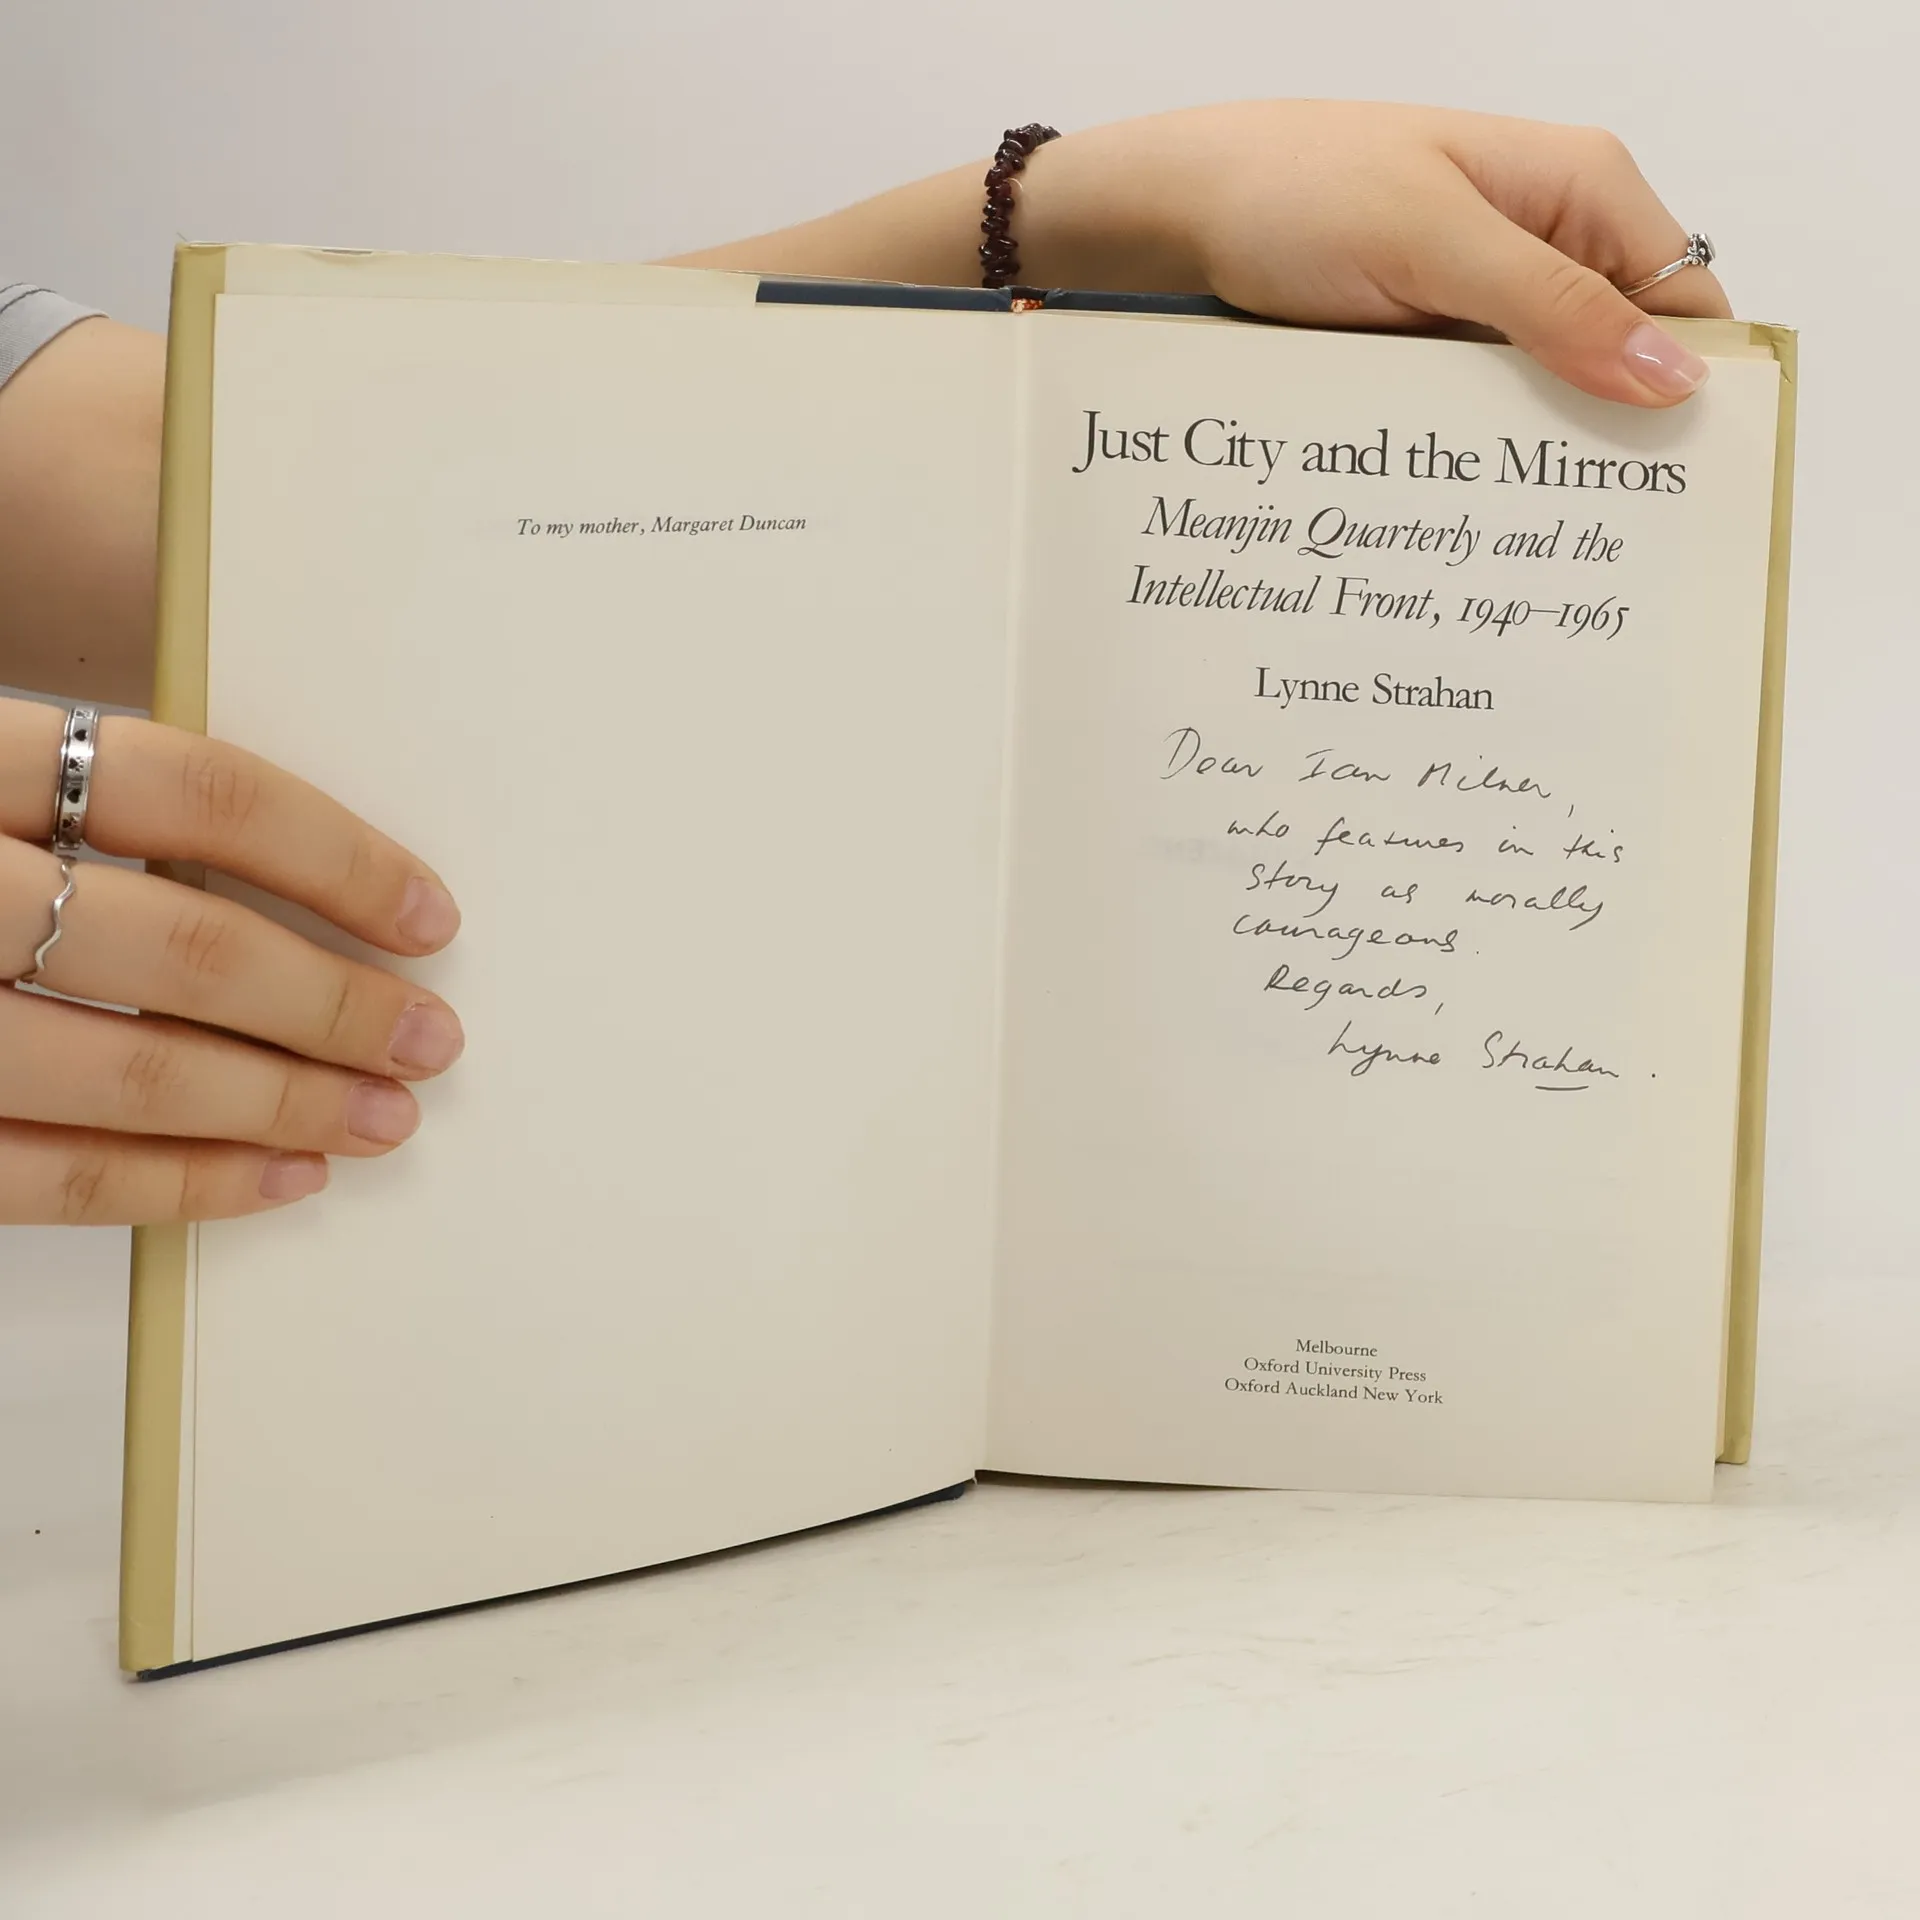 To my mother, Margaret Duncan
Just City and the Mirrors
Meanjin Quarterly and the
Intellectual Front, 1940–1965
Lynne Strahan
Dear Ian Milner,
who features in this
story as morally
courageous.
Regards,
Lynne Strahan.
Melbourne
Oxford University Press
Oxford Auckland New York